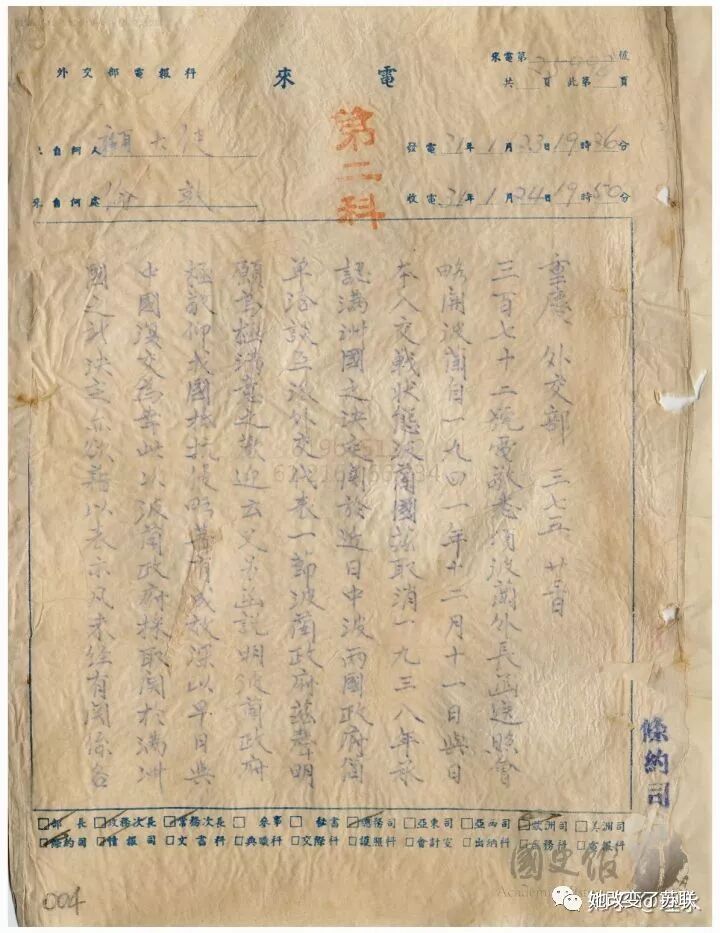 外交部電報科
來電
來電第 號
共 頁 此第 頁
第二科
來自何人 顧大使
來自何處 倫敦
發電 31年1月23日19時36分
收電 31年1月24日19時50分
重慶 外交部 三七五 廿三日
三百七十二號電敬悉頃波蘭外長函送照會
略開波蘭自一九四一年十二月十一日與日
本入交戰狀態波蘭國茲取消一九三八年承
認滿洲國之決定關於近日中波兩國政府簡
單洽談互派外交代表一節波蘭政府茲聲明
願為極滿意之歡迎云又另函說明波蘭政府
極敬仰我國抵抗侵略著有成效深以早日與
中國復交為幸此次波蘭政府採取關於滿洲
國之計決定亦欲藉以表示凡未經有關係各
條約司
部長 政務次長 常務次長 參事 秘書 總務司 亞東司 亞西司 歐洲司 美洲司
條約司 情報司 文書科 典職科 交際科 護照科 會計室 出納科 庶務科 電報科
國史館
Academia
004
她改变了苏联